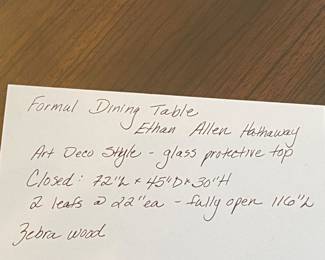 Formul Dining Table
Ethan Allen Hathaway
Art Deco Style - glass protective top
Closed: 72"L x 45"D x 30"H
2 leafs @ 22"ea - fully open 116"L
Zebra wood